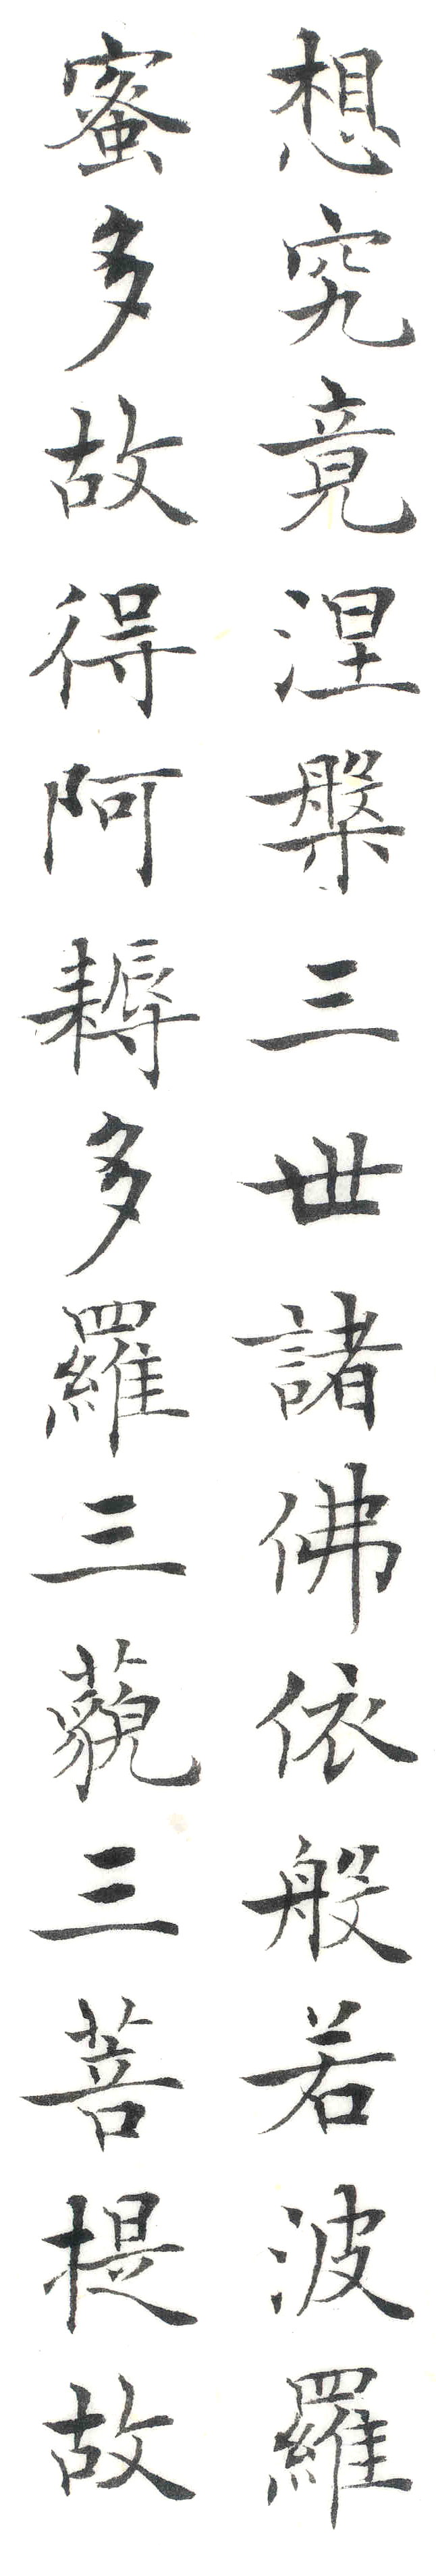 想究竟涅槃三世諸佛依般若波羅
蜜多故得阿耨多羅三藐三菩提故